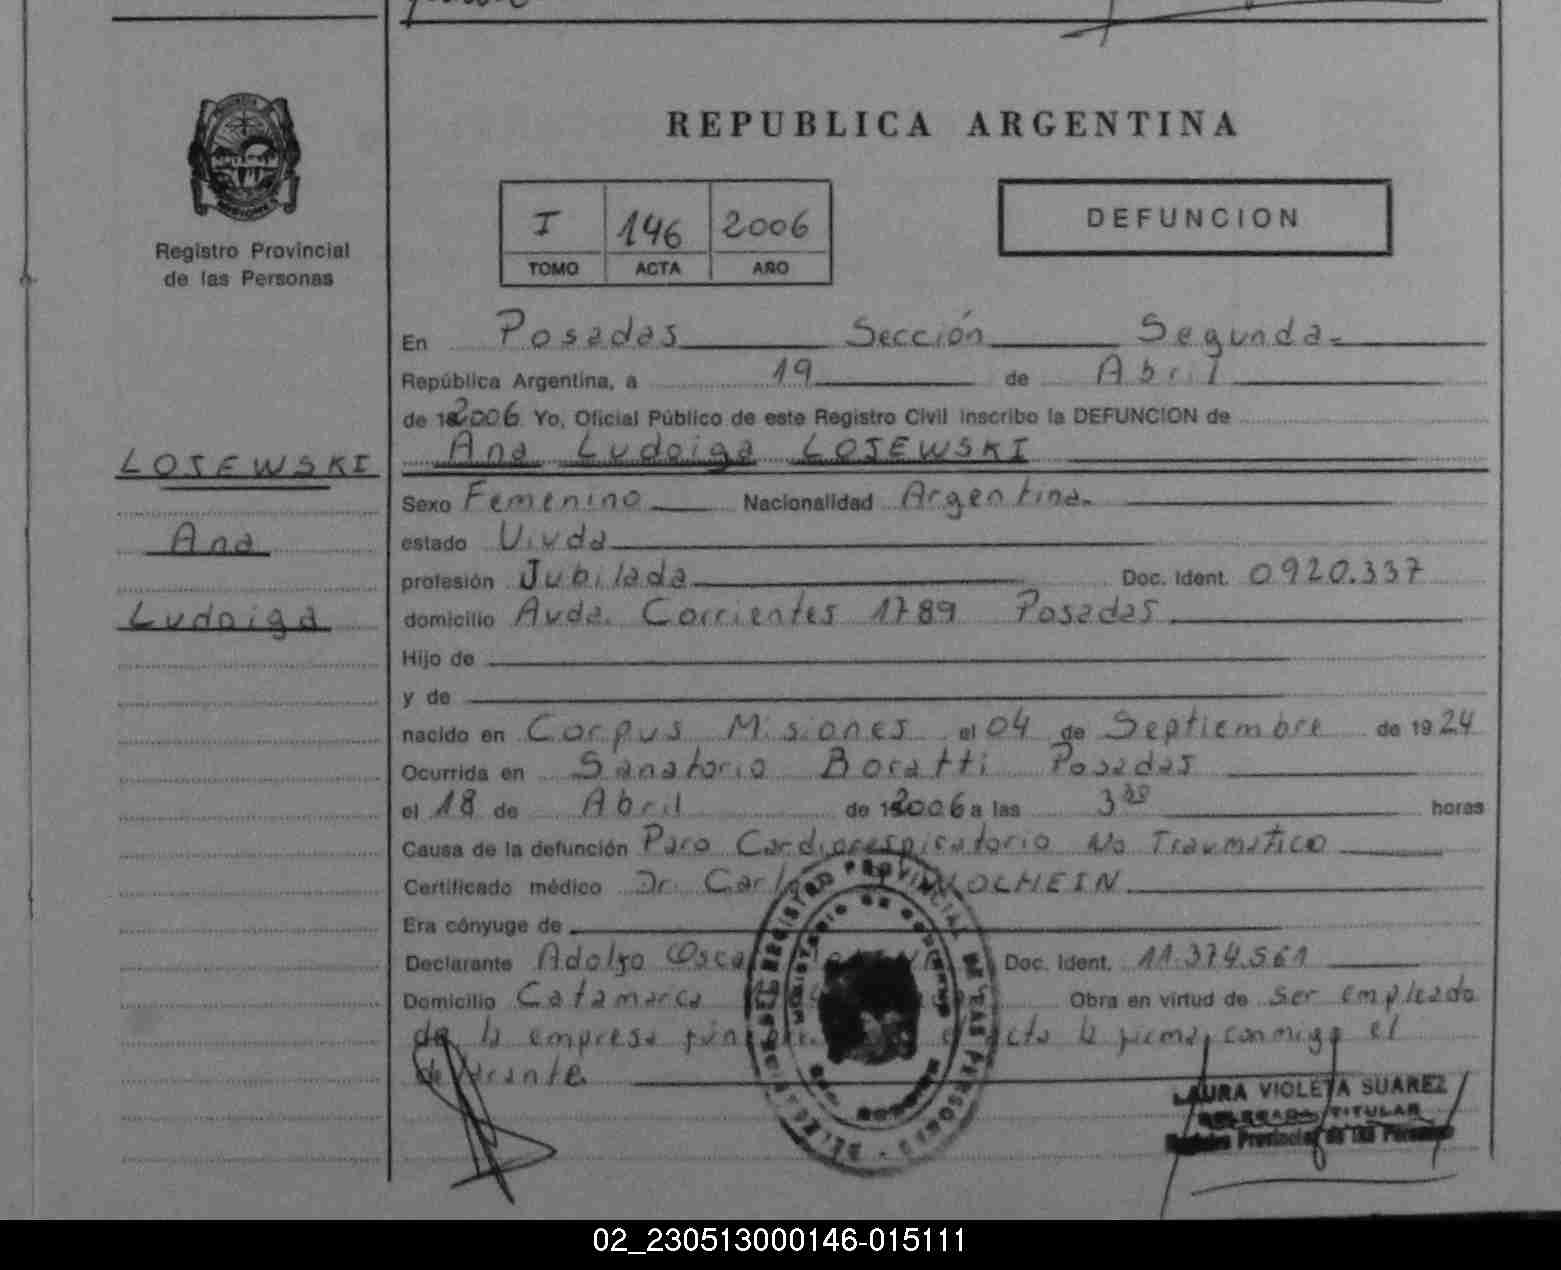 REPUBLICA ARGENTINA
I 146 2006
TOMO ACTA AÑO
DEFUNCION
Registro Provincial
de las Personas
En Posadas Sección Segunda.
República Argentina, a 19 de Abril
de 2006 Yo, Oficial Público de este Registro Civil inscribo la DEFUNCION de
LOSEWSKI
Ana Ludoiga LOSEWSKI
Sexo Femenino Nacionalidad Argentina.
Ana
estado Viuda
profesión Jubilada Doc. Ident. 0920.337
Ludoiga
domicilio Avda. Corrientes 1789 Posadas
Hijo de
y de
nacido en Corpus Misiones el 04 de Septiembre de 1924
Ocurrida en Sanatorio Boratti Posadas
el 18 de Abril de 2006 a las 3 30 horas
Causa de la defunción Paro Cardiorespiratorio No Traumático
Certificado médico Dr.
Era cónyuge de
Declarante Adolfo Doc. Ident. 11.374.561
Domicilio Catamarca Obra en virtud de ser empleado
de la empresa la firma conmigo el
LAURA VIOLETA SUAREZ
DELEGADA TITULAR
Registro Provincial de las Personas
REGISTRO PROVINCIAL DE LAS PERSONAS
MINISTERIO DE GOBIERNO
02_230513000146-015111